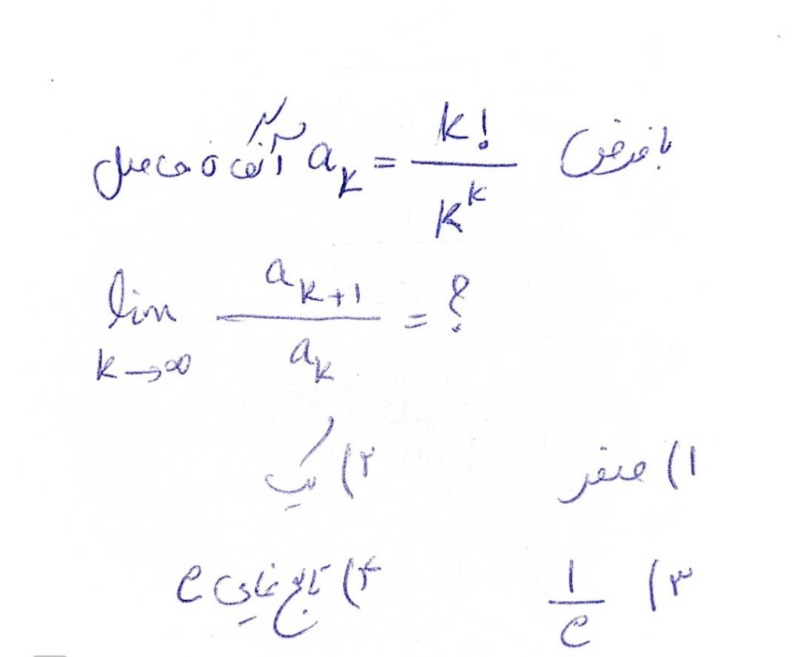 با فرض a_k = k!/k^k آنگاه حاصل
lim k→∞ a_{k+1}/a_k = ؟
۱) صفر ۲) یک
۳) 1/e ۴) تابع نمایی e